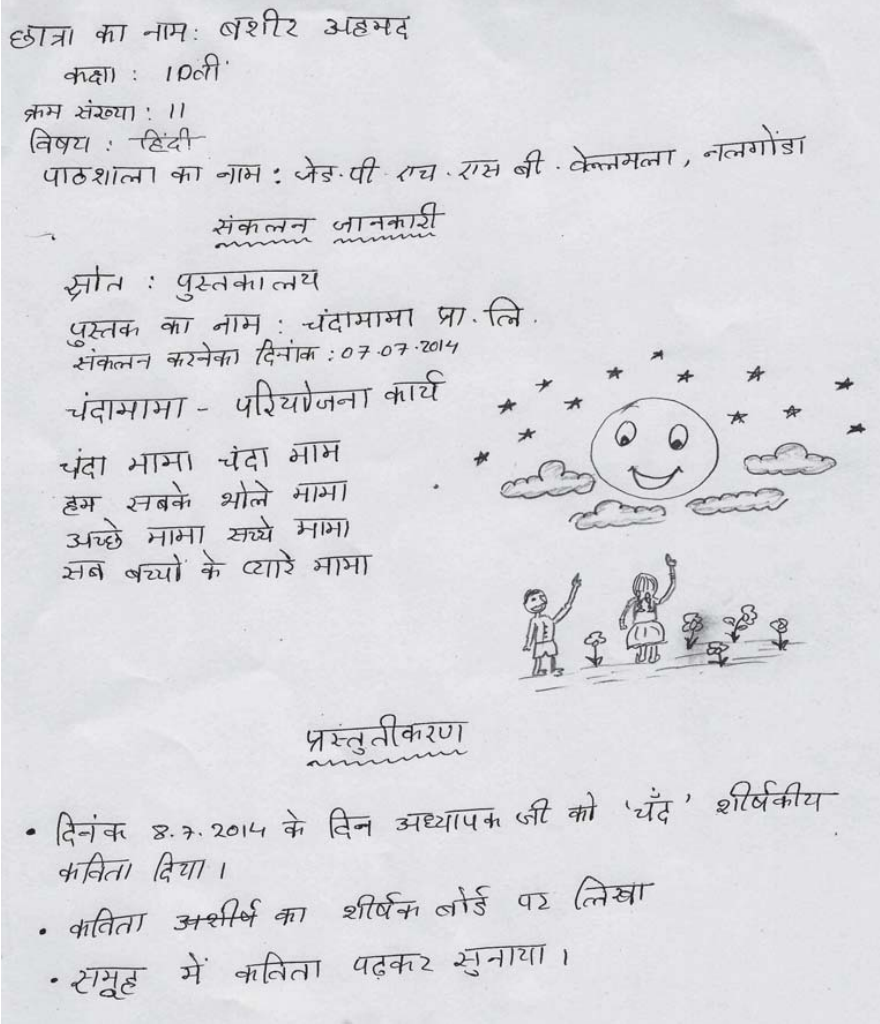 छात्रा का नाम: बशीर अहमद
कक्षा : 10वीं
क्रम संख्या : 11
विषय : हिंदी
पाठशाला का नाम : जेड.पी.एच.एस बी. वेल्लमला, नलगोंडा
संकलन जानकारी
स्रोत : पुस्तकालय
पुस्तक का नाम : चंदामामा प्रा. लि.
संकलन करनेका दिनांक : 07.07.2014
चंदामामा - परियोजना कार्य
चंदा मामा चंदा माम
हम सबके भोले मामा
अच्छे मामा सच्चे मामा
सब बच्चों के प्यारे मामा
प्रस्तुतीकरण
• दिनंक 8.7.2014 के दिन अध्यापक जी को 'चँद' शीर्षकीय
कविता दिया।
• कविता का शीर्षक बोर्ड पर लिखा
• समूह में कविता पढ़कर सुनाया।